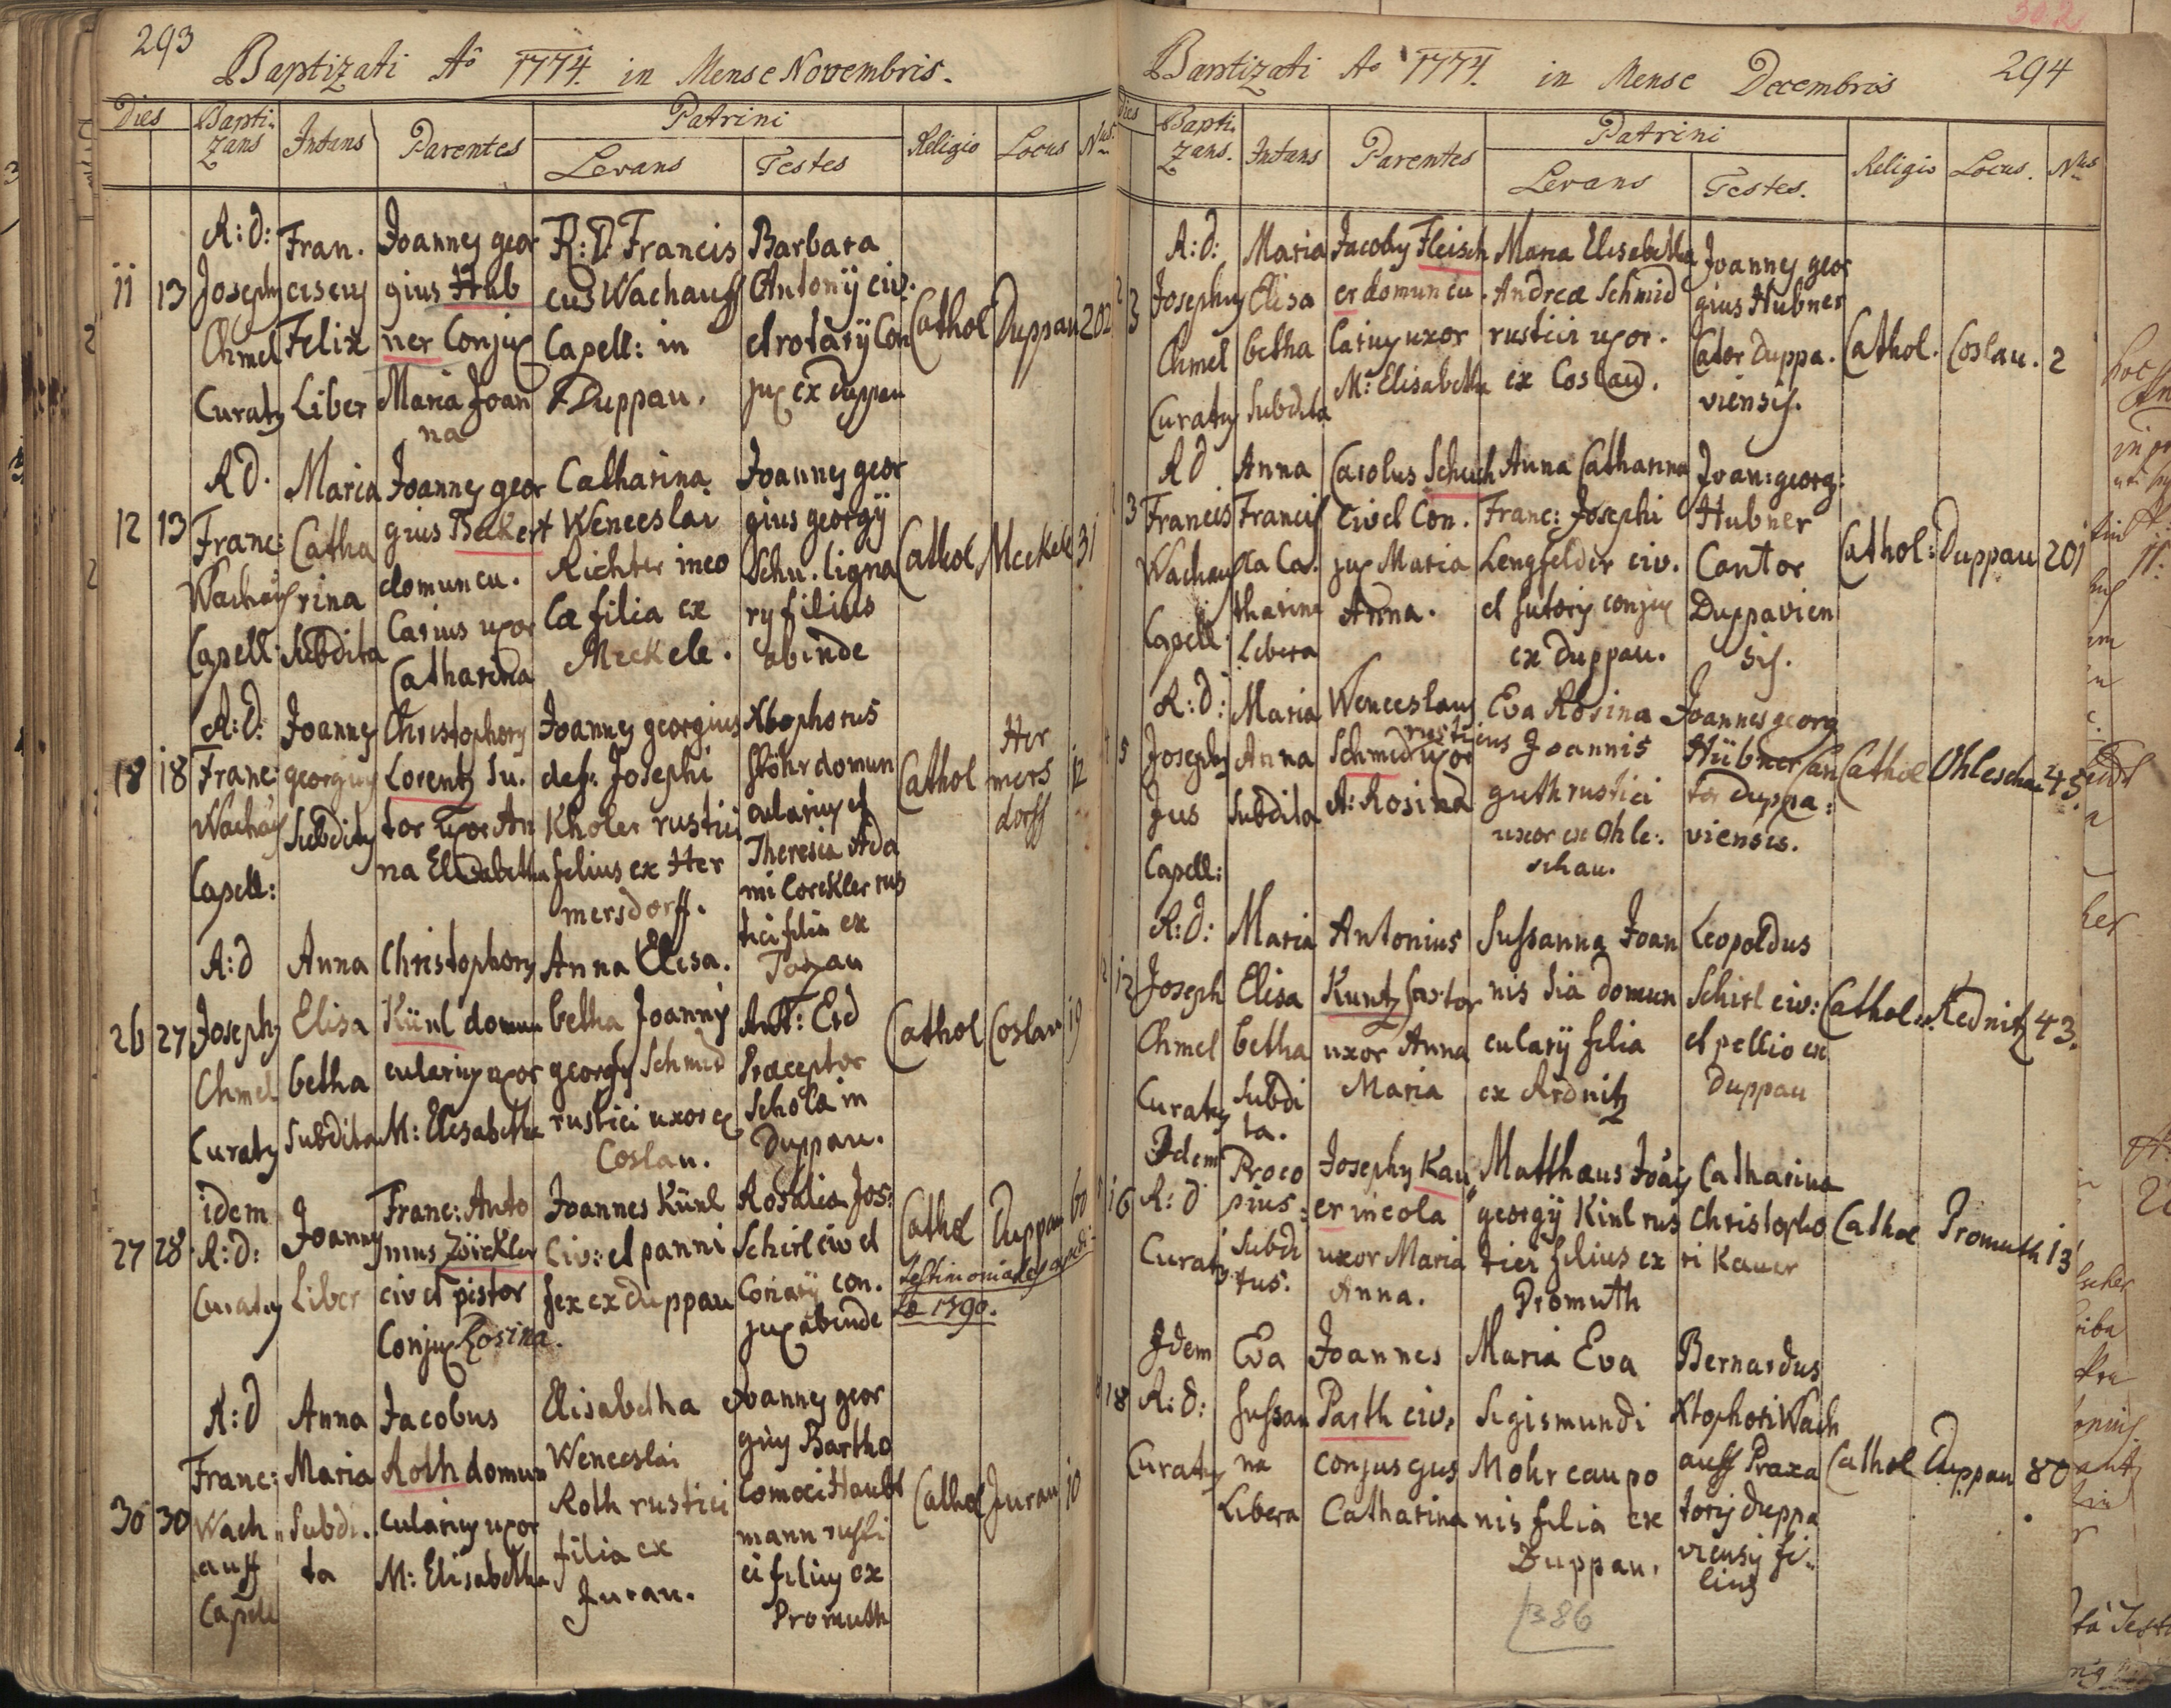 293
Baptizati Aº 1774. in Mense Novembris.
Dies
Bapti-
zans
Infans
Parentes
Patrini
Levans
Testes
Religio
Locus
Nus
11 13
R: d:
Josephg
Chmel
Curatg
Fran.
ciscus
Felix
Liber
Joannes geor
gius Hub
ner Conjux
Maria Joan
na
R: D. Francis
cus Wachauff
Capell: in
Duppau.
Barbara
Antonij civ.
et rotarij Con
jux ex Duppau
Cathol
Duppau
202
12 13
R d.
Franc:
Capell:
Maria
Catha
rina
Subdita
Joannes geor
gius Beckert
domuncu.
larius uxor
Catharina
Catharina
Wenceslai
Richter inco
la filia ex
Meckele.
Joannes geor
gius georgÿ
Schu. ligna
rÿ filius
abinde
Cathol
Meckele
31
18 18
R: d:
Franc:
Capell:
Joannes
georgius
Subditg
Christophorg
Lorentz Su.
tor uxor An
na Elisabetha
Joannes georgius
def: Josephi
Kholer rustici
filius ex Her
mersdorff.
Xtophorus
Stöhr domun
cularius et
Theresia Ada
mi Lorckler rus
tici filia ex
Cathol
Her
mers
dorff
12
26 27
R: d
Josephg
Chmel
Curatg
Anna
Elisa
betha
Subdita
Christophorg
Künl domun
cularius uxor
M: Elisabetha
Anna Elisa.
betha Joannis
georgÿ Schmid
rustici uxor ex
Coslau.
Ant: Erd
Præceptor
Schola in
Duppau.
Cathol
Coslau
19
27 28
idem
R: d:
Curatg
Joannes
Liber
Franc: Anto
nius Zörckler
civ et pistor
Conjux Rosina.
Joannes Künl
Civ: et panni
fex ex duppau
Rosalia Jos:
Schirl civ et
Coriarÿ con.
jux abinde
Cathol
Duppau
60
1790.
30 30
R: d
Franc:
Wach
auff
Capell
Anna
Maria
Subdi.
ta
Jacobus
Roth domun
cularius uxor
M: Elisabetha
Elisabetha
Wenceslai
Roth rustici
filia ex
Jurau.
Joannes geor
gius Bartho
lomoei Haubt
mann rusti
ci filius ex
Promuth
Cathol
Jurau
10
Baptizati Aº 1774. in Mense Decembris
294
Dies
Bapti.
zans.
Infans
Parentes
Patrini
Levans
Testes.
Religio
Locus.
Nus
3
R: d:
Josephus
Chmel
Curatg
Maria
Elisa
betha
Subdita
Jacobg Fleisch
er domuncu.
larius uxor
M: Elisabetha
Maria Elisabetha
Andreæ Schmid
rustici uxor.
ex Coslau.
Joannes geor
gius Hubner
Cator Duppa.
viensis.
Cathol.
Coslau.
2
3
R d
Francis
Wachau
Capell.
Anna
Francis
ca Ca.
tharina
Libera
Carolus Schuch
Civ et Con.
jux Maria
Anna.
Anna Catharina
Franc: Josephi
Lengfelder civ.
et sutoris conjux
ex Duppau.
Joan: georg:
Hubner
Cantor
Duppavien
sis.
Cathol:
Duppau
201
5
R: d:
Josephg
Jus
Capell:
Maria
Anna
Subdita
Wenceslaus
rusticus
Schmid uxor
A: Rosina
Eva Rosina
Joannis
guth rustici
uxor ex Ohle:
schau.
Joannes georg
Hübner Can
tor duppa:
viensis.
Cathol
Ohleschau
45.
12
R: d:
Joseph
Chmel
Curatg
Maria
Elisa
betha
Subdi
ta.
Antonius
Kuntz Sartor
uxor Anna
Maria
Sussanna Joan
nis Siä domun
cularÿ filia
ex Rednitz
Leopoldus
Schirl civ:
et pellio ex
Duppau
Cathol.
Rednitz
43.
16
Idem
R: d
Curatg
Proco
pius:
Subdi
tus.
Josephg Kau
er incola
uxor Maria
Anna.
Matthaus Joais
georgÿ Kinl rus
tici filius ex
Promuth
Catharina
Christopho
ri Kauer
Cathol
Promuth
13
18
Idem
R: d:
Curatg
Eva
Sussan
na
Libera
Joannes
Parth civ.
conjus gus
Catharina
Maria Eva
Sigismundi
Mohr caupo
nis filia ex
Duppau.
Bernardus
Xtophori Wach
auff Praxa
toris duppa
viensis fi-
lius
Cathol
Duppau
80
386